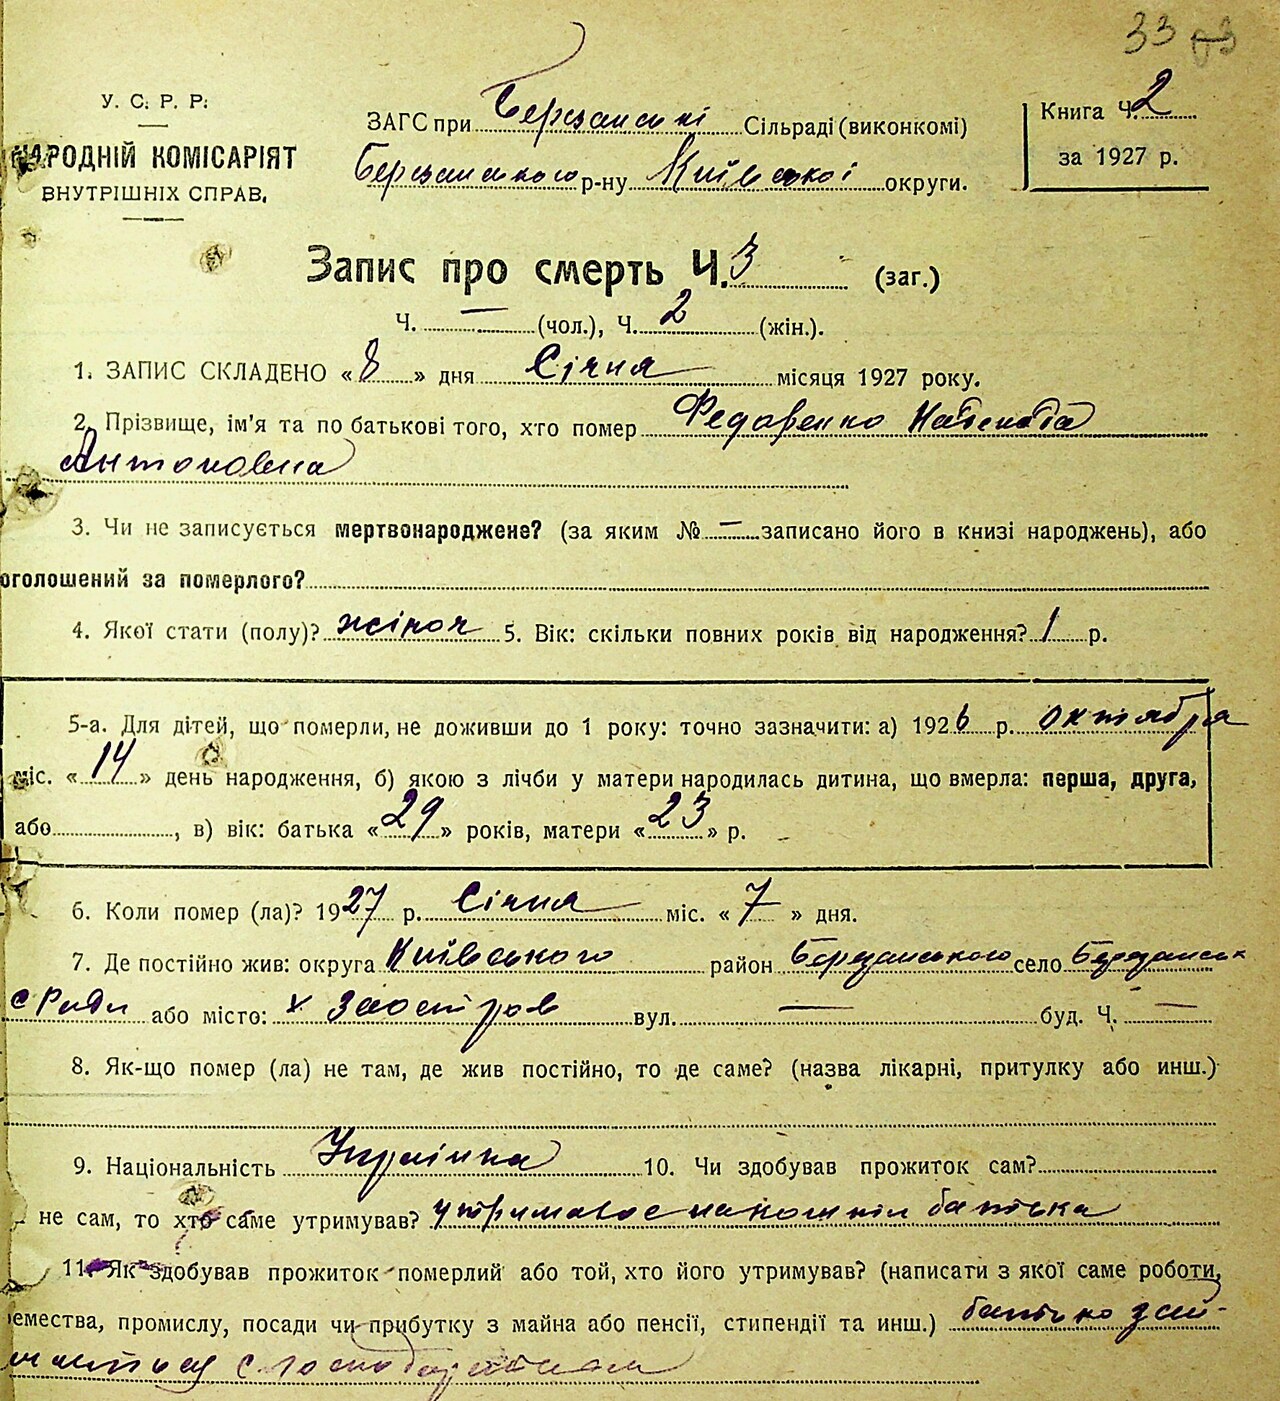 33
У. С. Р. Р.
НАРОДНІЙ КОМІСАРІЯТ
ВНУТРІШНІХ СПРАВ.
ЗАГС при Березанські Сільраді (виконкомі)
Березанського р-ну Київської округи.
Книга Ч. 2
за 1927 р.
Запис про смерть Ч. 3 (заг.)
Ч. — (чол.), Ч. 2 (жін.).
1. ЗАПИС СКЛАДЕНО « 8 » дня Січня місяця 1927 року.
2. Прізвище, ім'я та по батькові того, хто помер Федоренко
Антоновна
3. Чи не записується мертвонароджене? (за яким № — записано його в книзі народжень), або
оголошений за померлого?
4. Якої стати (полу)? жіноч 5. Вік: скільки повних років від народження? 1 р.
5-а. Для дітей, що померли, не доживши до 1 року: точно зазначити: а) 1926 р. октября
міс. « 14 » день народження, б) якою з лічби у матери народилась дитина, що вмерла: перша, друга,
або , в) вік: батька « 29 » років, матери « 23 » р.
6. Коли помер (ла)? 1927 р. Січня міс. « 7 » дня.
7. Де постійно жив: округа Київського район Березанського село Березанськ
с Ради або місто: х Заостров вул. — буд. Ч. —
8. Як-що помер (ла) не там, де жив постійно, то де саме? (назва лікарні, притулку або инш.)
9. Національність Українка 10. Чи здобував прожиток сам?
не сам, то хто саме утримував? утримовое на кошти батька
11. Як здобував прожиток померлий або той, хто його утримував? (написати з якої саме роботи,
емества, промислу, посади чи прибутку з майна або пенсії, стипендії та инш.) батько зай-
мається с господарством